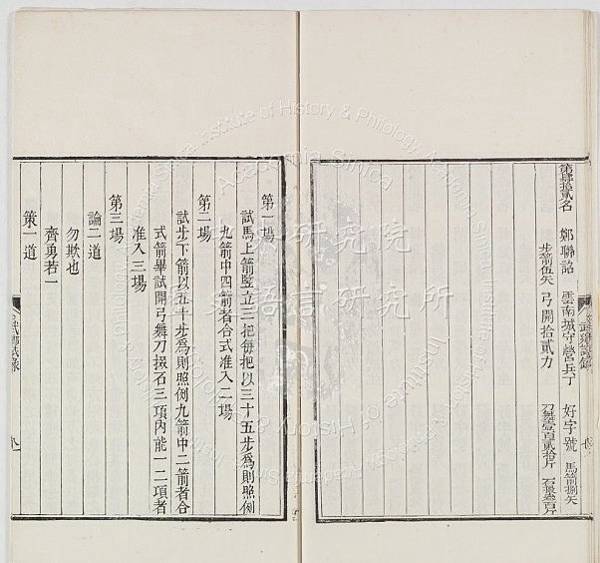 第肆拾貳名　鄭聯詔　雲南城守營兵丁　好字號　馬箭捌矢
步箭伍矢　弓開拾貳力　刀舞壹百貳拾斤　石掇叁百斤
第一場
試馬上箭竪立三把每把以三十五步爲則照例
九箭中四箭者合式准入二場
第二場
試步下箭以五十步爲則照例九箭中二箭者合
式箭畢試開弓舞刀掇石三項內能一二項者
准入三場
第三場
論二道
勿欺也
齊勇若一
策一道
武鄉試錄
Institute of History & Philology, Academia Sinica
研究院
語言研究所